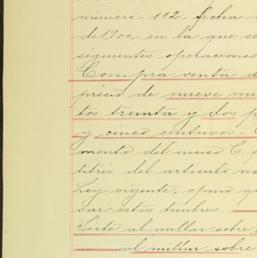 número 112 fecha
de 1900, en la que se
siguientes operaciones
Compra venta d
precio de nueve mi
tos treinta y dos p
y cinco centavos = C
mento del inciso C.
titrés del artículo no
Ley vigente, opino qu
sar estos timbres.
Siete al millar sobre
al millar sobre